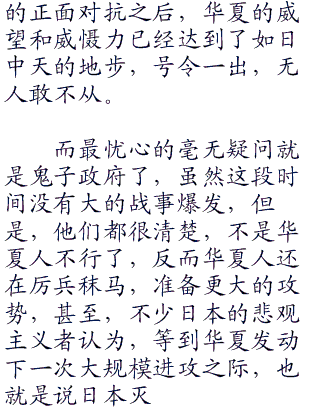 的正面对抗之后，华夏的威
望和威慑力已经达到了如日
中天的地步，号令一出，无
人敢不从。
而最忧心的毫无疑问就
是鬼子政府了，虽然这段时
间没有大的战事爆发，但
是，他们都很清楚，不是华
夏人不行了，反而华夏人还
在厉兵秣马，准备更大的攻
势，甚至，不少日本的悲观
主义者认为，等到华夏发动
下一次大规模进攻之际，也
就是说日本灭